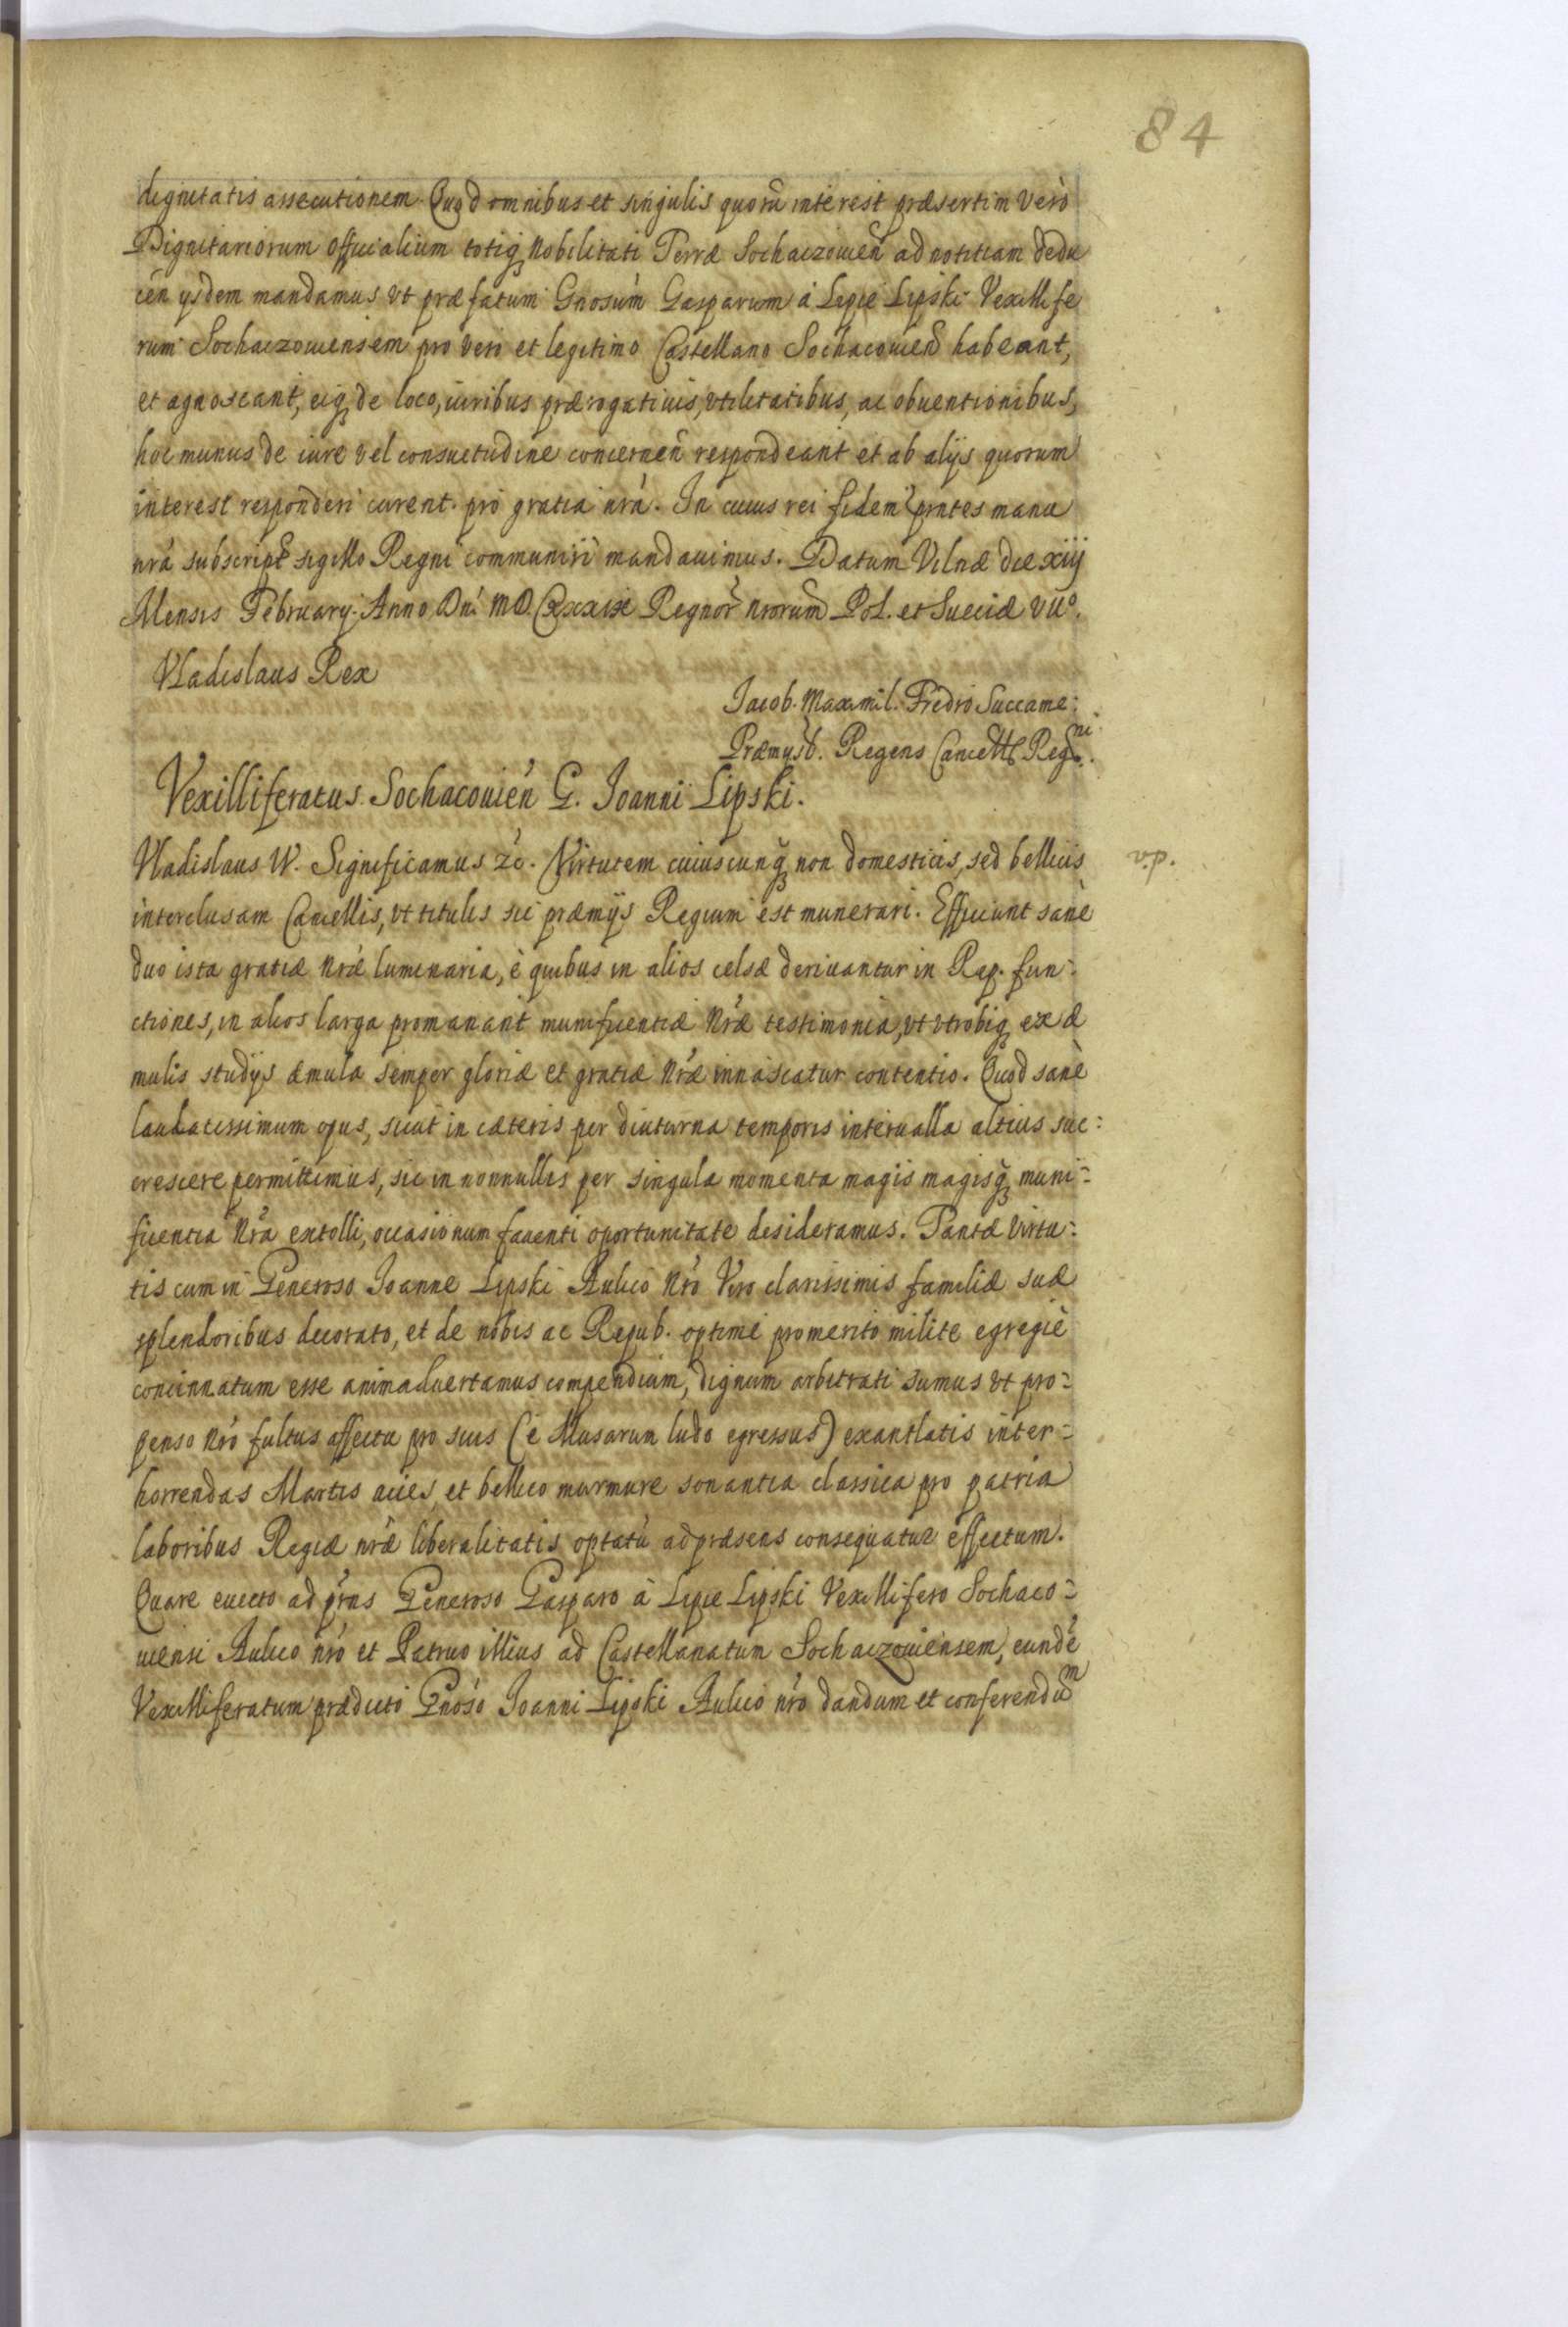 84
dignitatis assecutionem Quod omnibus et singulis quorũ interest præsertim verò
Dignitariorum officialium totiq₃ Nobilitati Terræ Sochaczouień ad notitiam dedu
cen ysdem mandamus vt præfatum Gnosum Gasparum à Lipie Lipski Vexillife
rum Sochaczouiensem pro vero et legitimo Castellano Sochacouien habeant,
et agnoscant, eiq₃ de loco, iuribus prærogatiuis, vtilitatibus, ac obuentionibus,
hoc munus de iure vel consuetudine concernen̄ respondeant et ab alijs quorum
interest responderi curent. pro gratia nrá. In cuius rei fidem prntes manu
nrá subscript sigillo Regni communiri mandauimus. Datum Vilnæ die xiij
Mensis February Anno Dni MDCxxxix Regnor nrorum Pol. et Sueciæ VIIº.
Vladislaus Rex
Jacob. Maximil. Fredro Succame:
Præmysl. Regens Cancell Regni.
Vexilliferatus Sochacouień G. Joanni Lipski.
Vladislaus W. Significamus zć. Virtutem cuiuscunq₃ non domesticis, sed bellicis
v.p.
interclusam Cancellis, vt titulis sic præmijs Regium est munerari. Efficiunt sanè
duo ista gratiæ Nræ luminaria, è quibus in alios celsæ deriuantur in Rep. fun-
ctiones, in alios larga promanant munificentiæ Nræ testimonia, vt vtrobiq₃ ex æ
mulis studijs æmula semper gloriæ et gratiæ Nræ innascatur contentio. Quod sanè
laudatissimum opus, sicut in cæteris per diuturna temporis interualla altius suc:
crescere permittimus, sic in nonnullis per singula momenta magis magisq₃ muni-
ficentia Nŕa extolli, occasionum fauenti oportunitate desideramus. Tantæ virtu:
tis cum in Generoso Joanne Lipski Aulico Nŕo Viro clarissimis familiæ suæ
splendoribus decorato, et de nobis ac Repub. optime promerito milite egregiè
concinnatum esse animaduertamus compendium, dignum arbitrati sumus vt pro-
penso Nŕo fultus affectu pro suis (è Musarum ludo egressus) exantlatis inter-
horrendas Martis acies, et bellico murmure sonantia classica pro patria
laboribus Regiæ nræ liberalitatis optatũ ad præsens consequatur effectum.
Quare euecto ad pŕns Generoso Gasparo à Lipie Lipski Vexillifero Sochaco-
uiensi Aulico nŕo et Patruo illius ad Castellanatum Sochaczouiensem, eundē
Vexilliferatum prædicto Gnoso Joanni Lipski Aulico nŕo dandum et conferendum